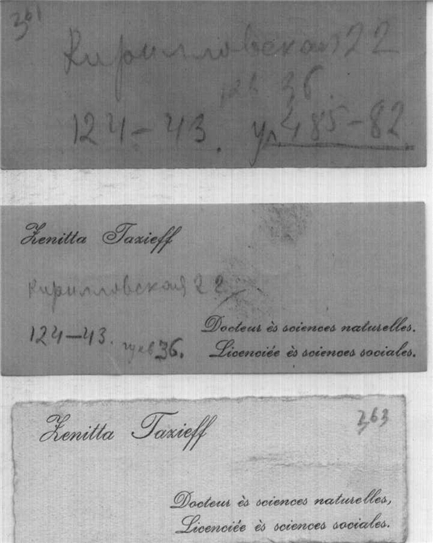 261
Кирилловская 22
36
124-43. 485-82
Zenitta Tazieff
Кирилловская 22
124-43. 36.
Docteur ès sciences naturelles.
Licenciée ès sciences sociales.
Zenitta Tazieff
263
Docteur ès sciences naturelles,
Licenciée ès sciences sociales.